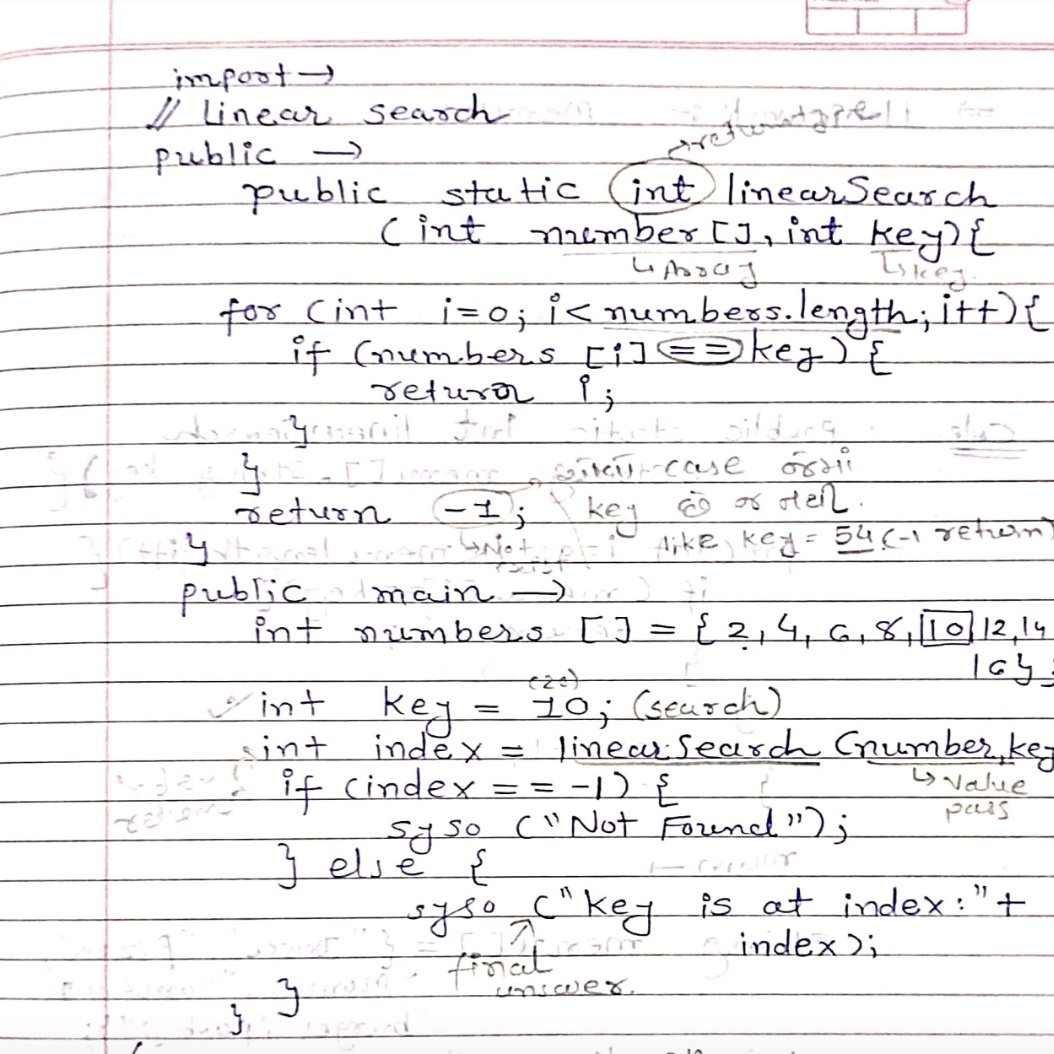 import →
// Linear search
public →
→ return type
public static int linearSearch
(int number [], int key) {
↳ Array ↳ key
for (int i=0; i< numbers.length; i++) {
if (numbers [i] == key) {
return i;
}
}
case
return -1; key છે કે નહી.
↳ Not exist. like key = 54 (-1 return)
}
public main →
int numbers [] = { 2, 4, 6, 8, 10, 12, 14
16};
(20)
int key = 10; (search)
int index = linearSearch (number, key
if (index == -1) { ↳ value
pass
syso ("Not Found");
} else {
syso ("key is at index:" +
index);
final
answer.
}
}